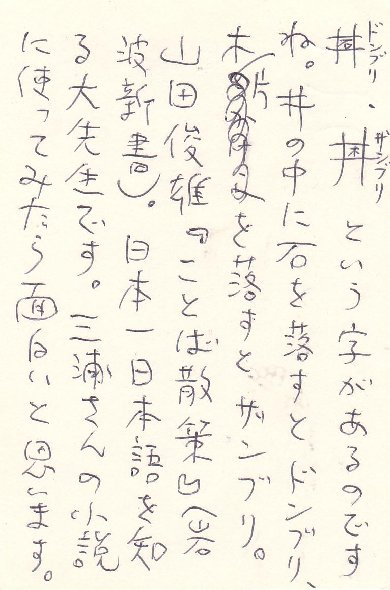 ドンブリ、ザンブリという字があるのです
ね。井の中に石を落すとドンブリ、
木片を落すとザンブリ。
山田俊雄『ことば散策』(岩
波新書)。日本一日本語を知
る大先生です。三浦さんの小説
に使ってみたら面白いと思います。